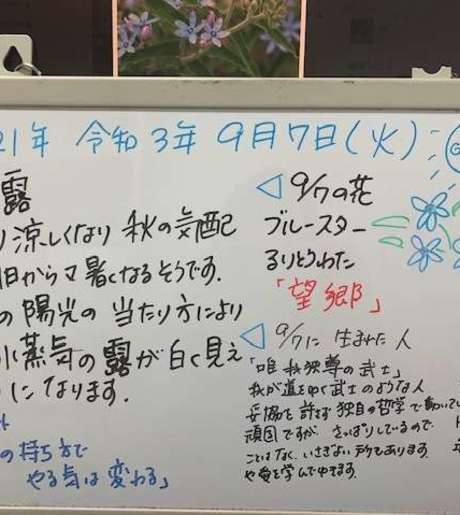 21年 令和3年 9月7日(火)
露
り涼しくなり 秋の気配
日からマ暑くなるそうです.
の陽光の当たり方により
水蒸気の露が白く見え
になります.
の持ち方で
やる気は変わる」
◁ 9/7の花
ブルースター
るりとうわた
「望郷」
◁ 9/7に生まれた人
「唯我独尊の武士」
我が道をゆく武士のような人
妥協を許さず独自の哲学で動いてい
頑固ですが、さっぱりしているので
ことはなく、いさぎよい所もあります
や愛を学んでゆきます.